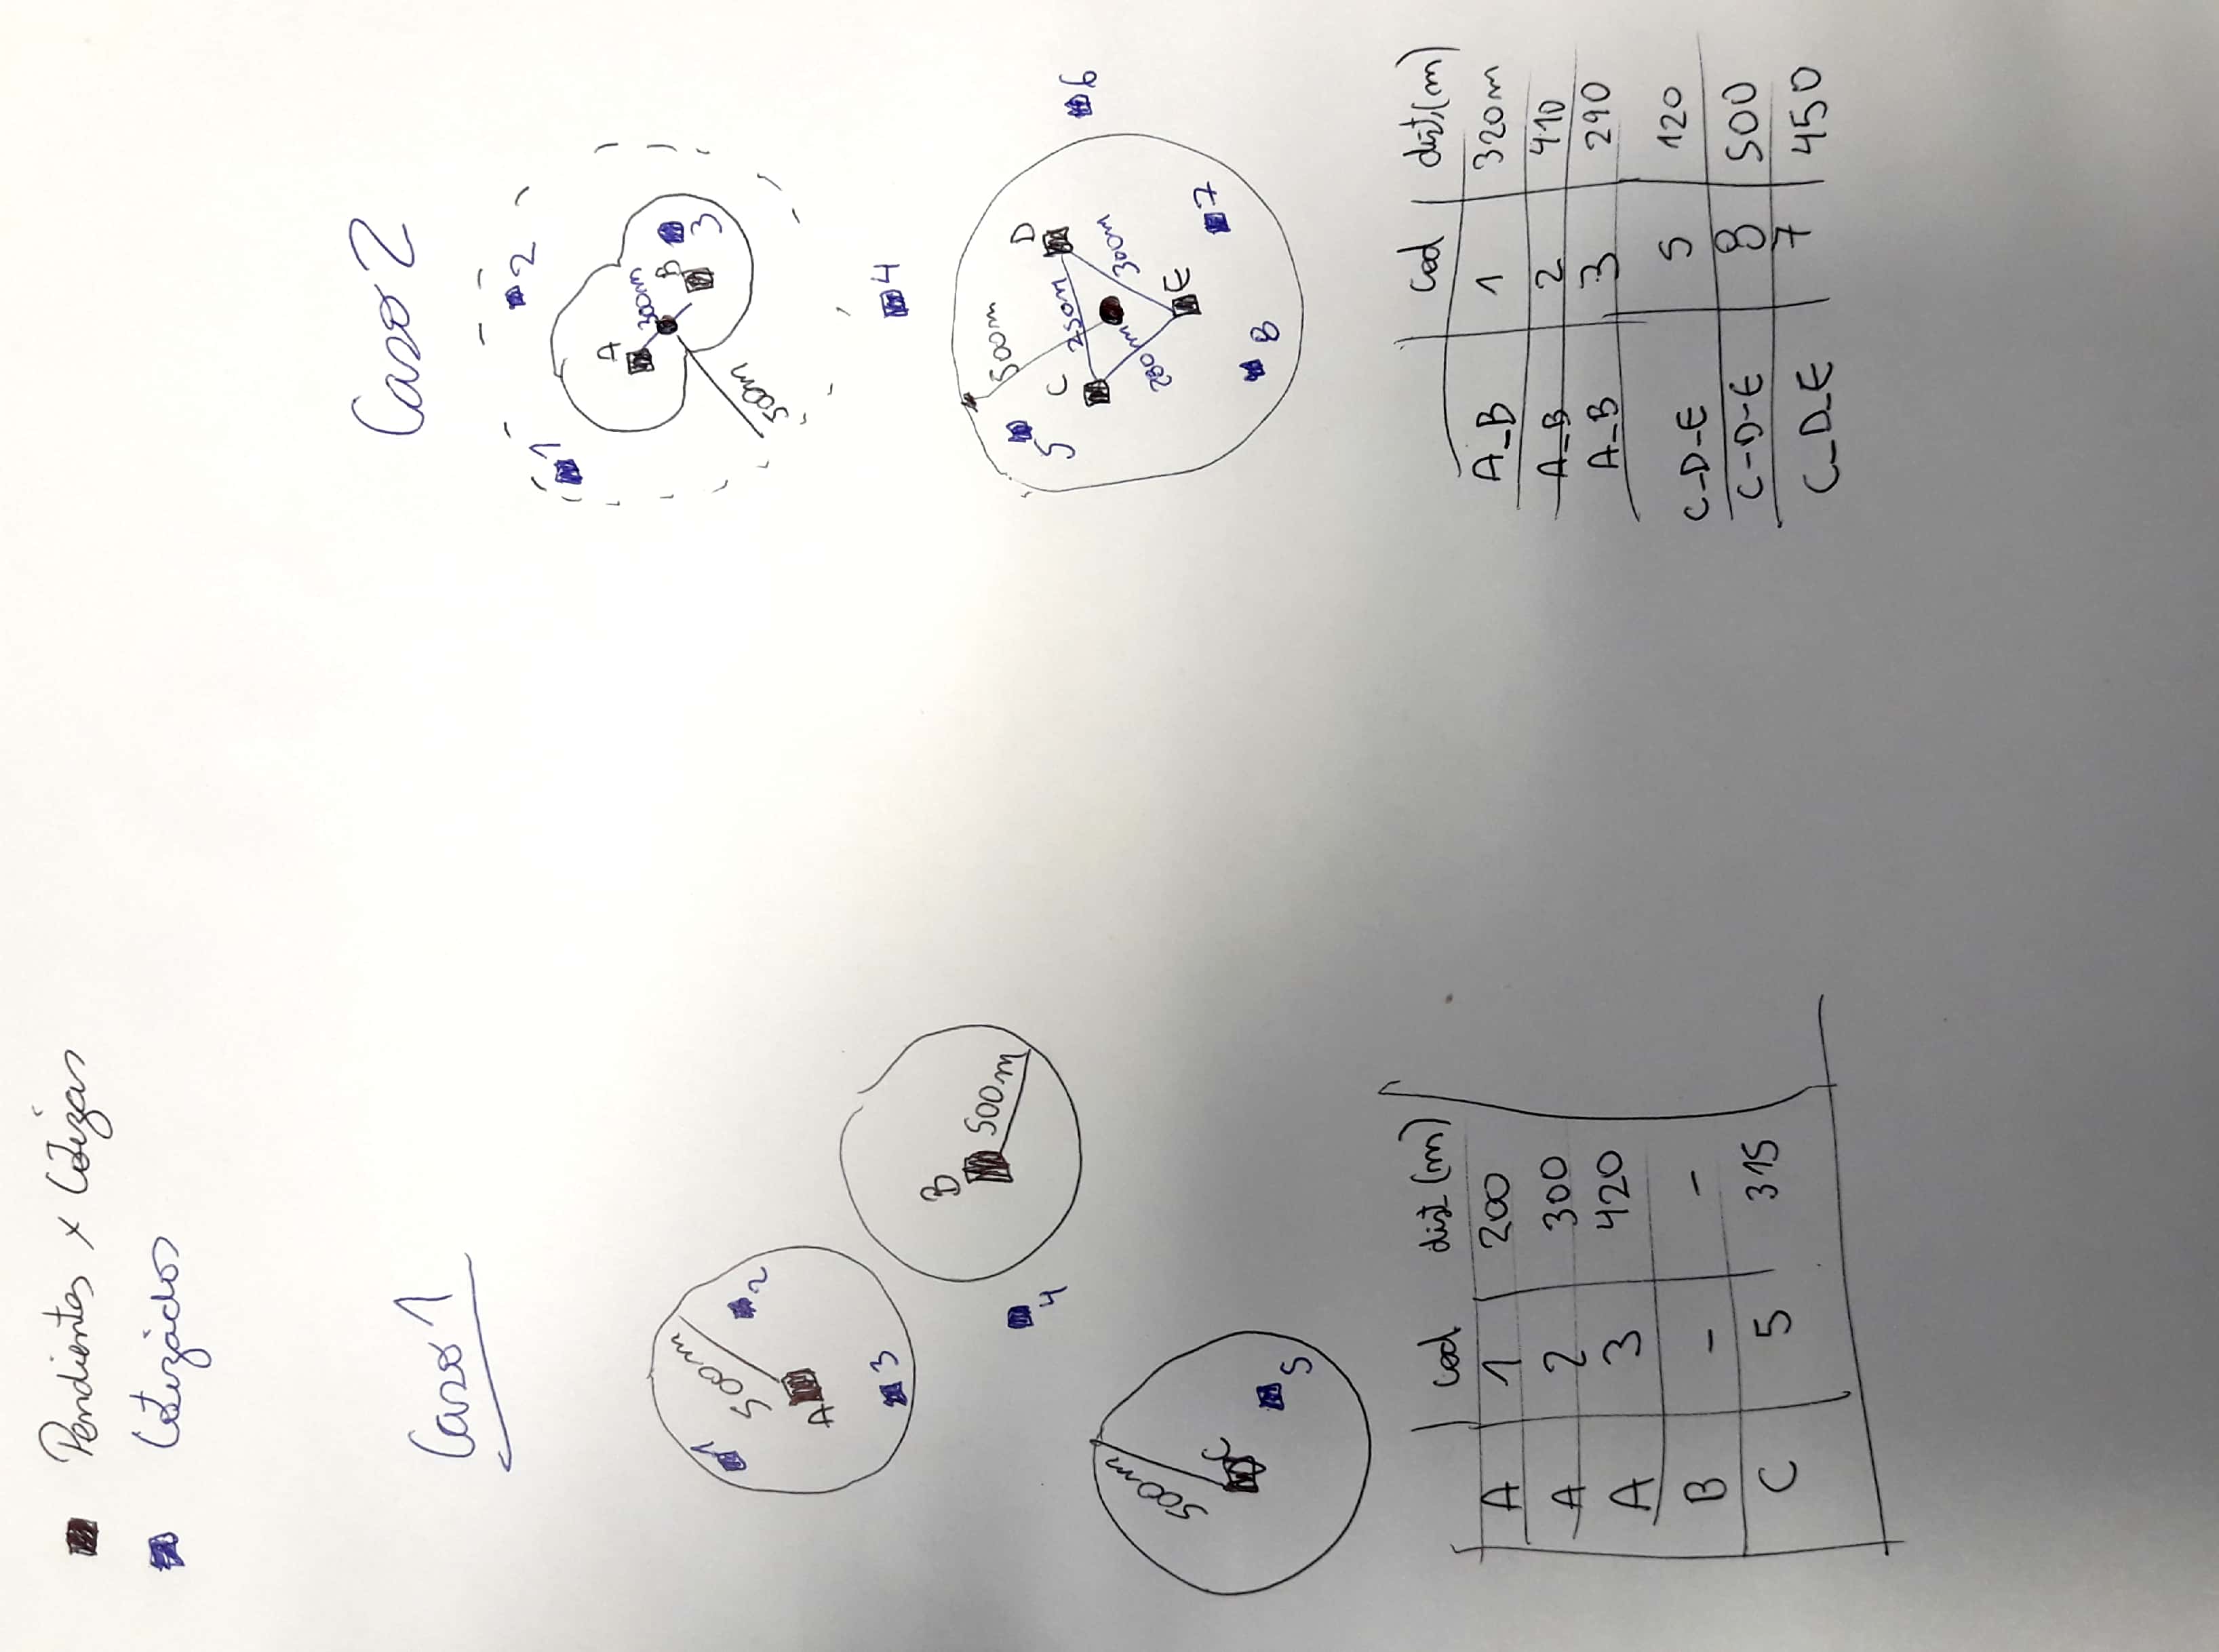 Pendientes x Cotizar
Cotizados
Caso 1
1
500m
2
A
3
B
500m
4
500m
C
5
cod dist (m)
A 1 200
A 2 300
A 3 420
B - -
C 5 315
Caso 2
1
2
A
300m
B
3
500m
4
500m
5
C
D
250m
6
280m
300m
E
7
8
cod dist.(m)
A_B 1 320m
A_B 2 410
A_B 3 290
C_D_E 5 120
C-D-E 8 500
C_D_E 7 450